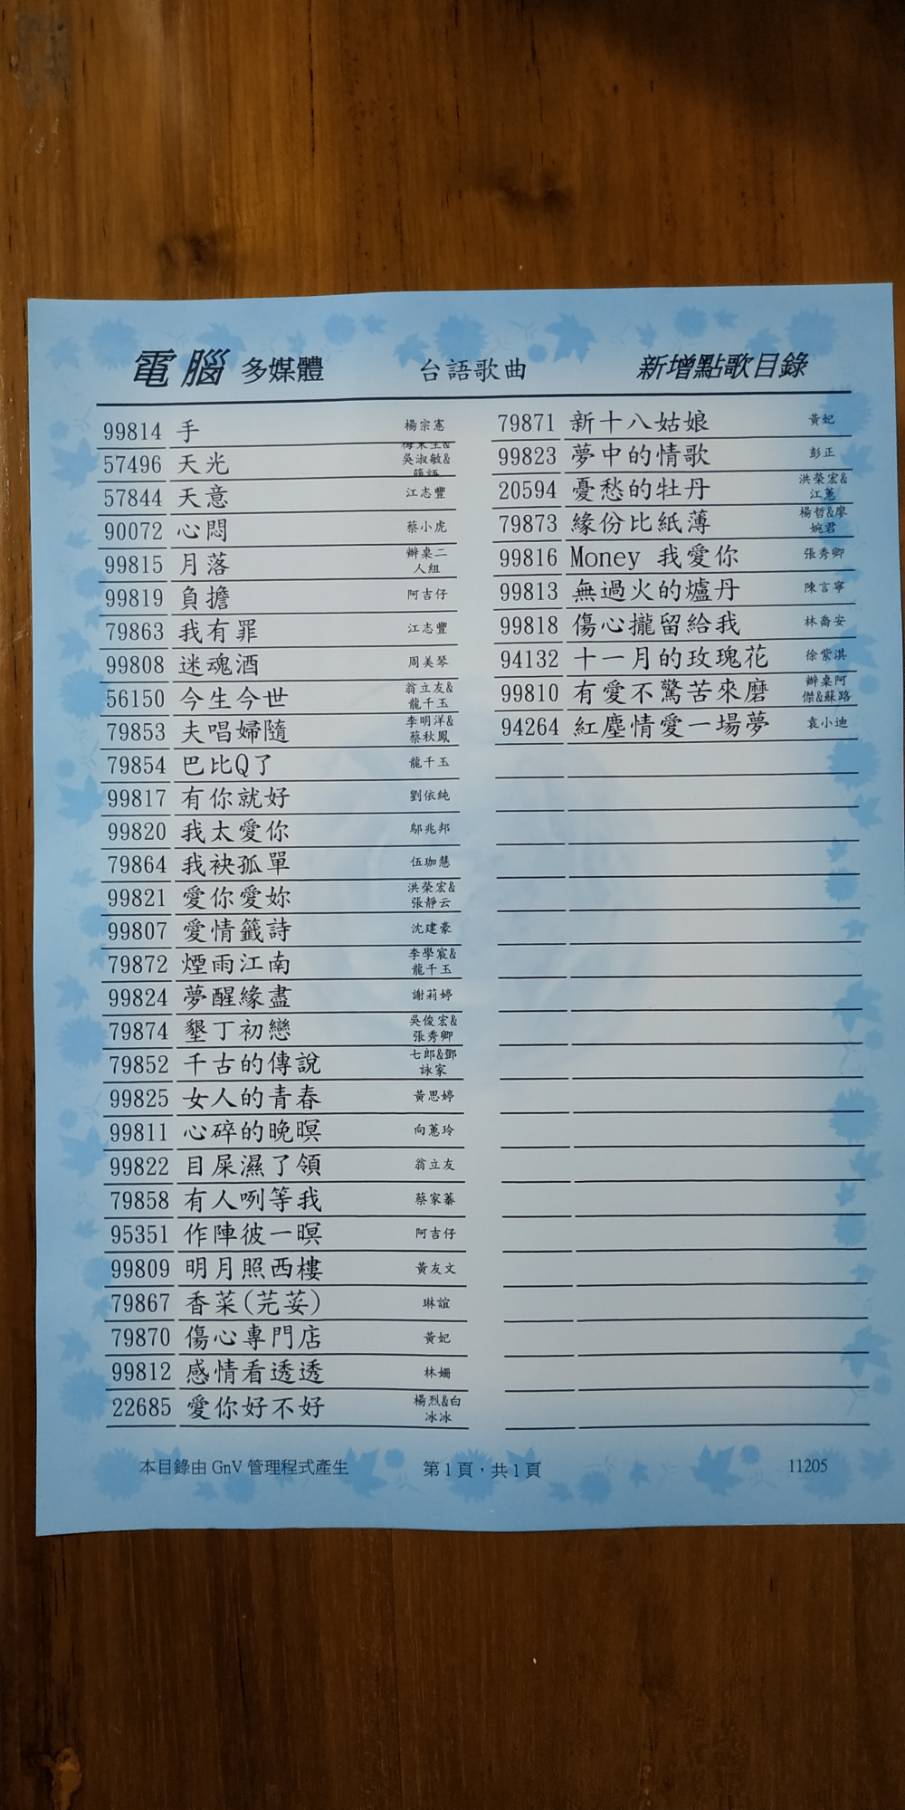 電腦 多媒體 台語歌曲 新增點歌目錄
99814 手 楊宗憲
57496 天光 吳淑敏&
57844 天意 江志豐
90072 心悶 蔡小虎
99815 月落 辦桌二人組
99819 負擔 阿吉仔
79863 我有罪 江志豐
99808 迷魂酒 周美琴
56150 今生今世 翁立友&龍千玉
79853 夫唱婦隨 李明洋&蔡秋鳳
79854 巴比Q了 龍千玉
99817 有你就好 劉依純
99820 我太愛你 鄔兆邦
79864 我袂孤單 伍珈慧
99821 愛你愛妳 洪榮宏&張靜云
99807 愛情籤詩 沈建豪
79872 煙雨江南 李學宸&龍千玉
99824 夢醒緣盡 謝莉婷
79874 墾丁初戀 吳俊宏&張秀卿
79852 千古的傳說 七郎&鄧詠家
99825 女人的青春 黃思婷
99811 心碎的晚暝 向蕙玲
99822 目屎濕了領 翁立友
79858 有人咧等我 蔡家蓁
95351 作陣彼一暝 阿吉仔
99809 明月照西樓 黃友文
79867 香菜(芫荽) 琳誼
79870 傷心專門店 黃妃
99812 感情看透透 林姍
22685 愛你好不好 楊烈&白冰冰
79871 新十八姑娘 黃妃
99823 夢中的情歌 彭正
20594 憂愁的牡丹 洪榮宏&江蕙
79873 緣份比紙薄 楊哲&廖婉君
99816 Money 我愛你 張秀卿
99813 無過火的爐丹 陳言寧
99818 傷心攏留給我 林喬安
94132 十一月的玫瑰花 徐紫淇
99810 有愛不驚苦來磨 辦桌阿傑&蘇路
94264 紅塵情愛一場夢 袁小迪
本目錄由 GnV 管理程式產生 第1頁,共1頁 11205